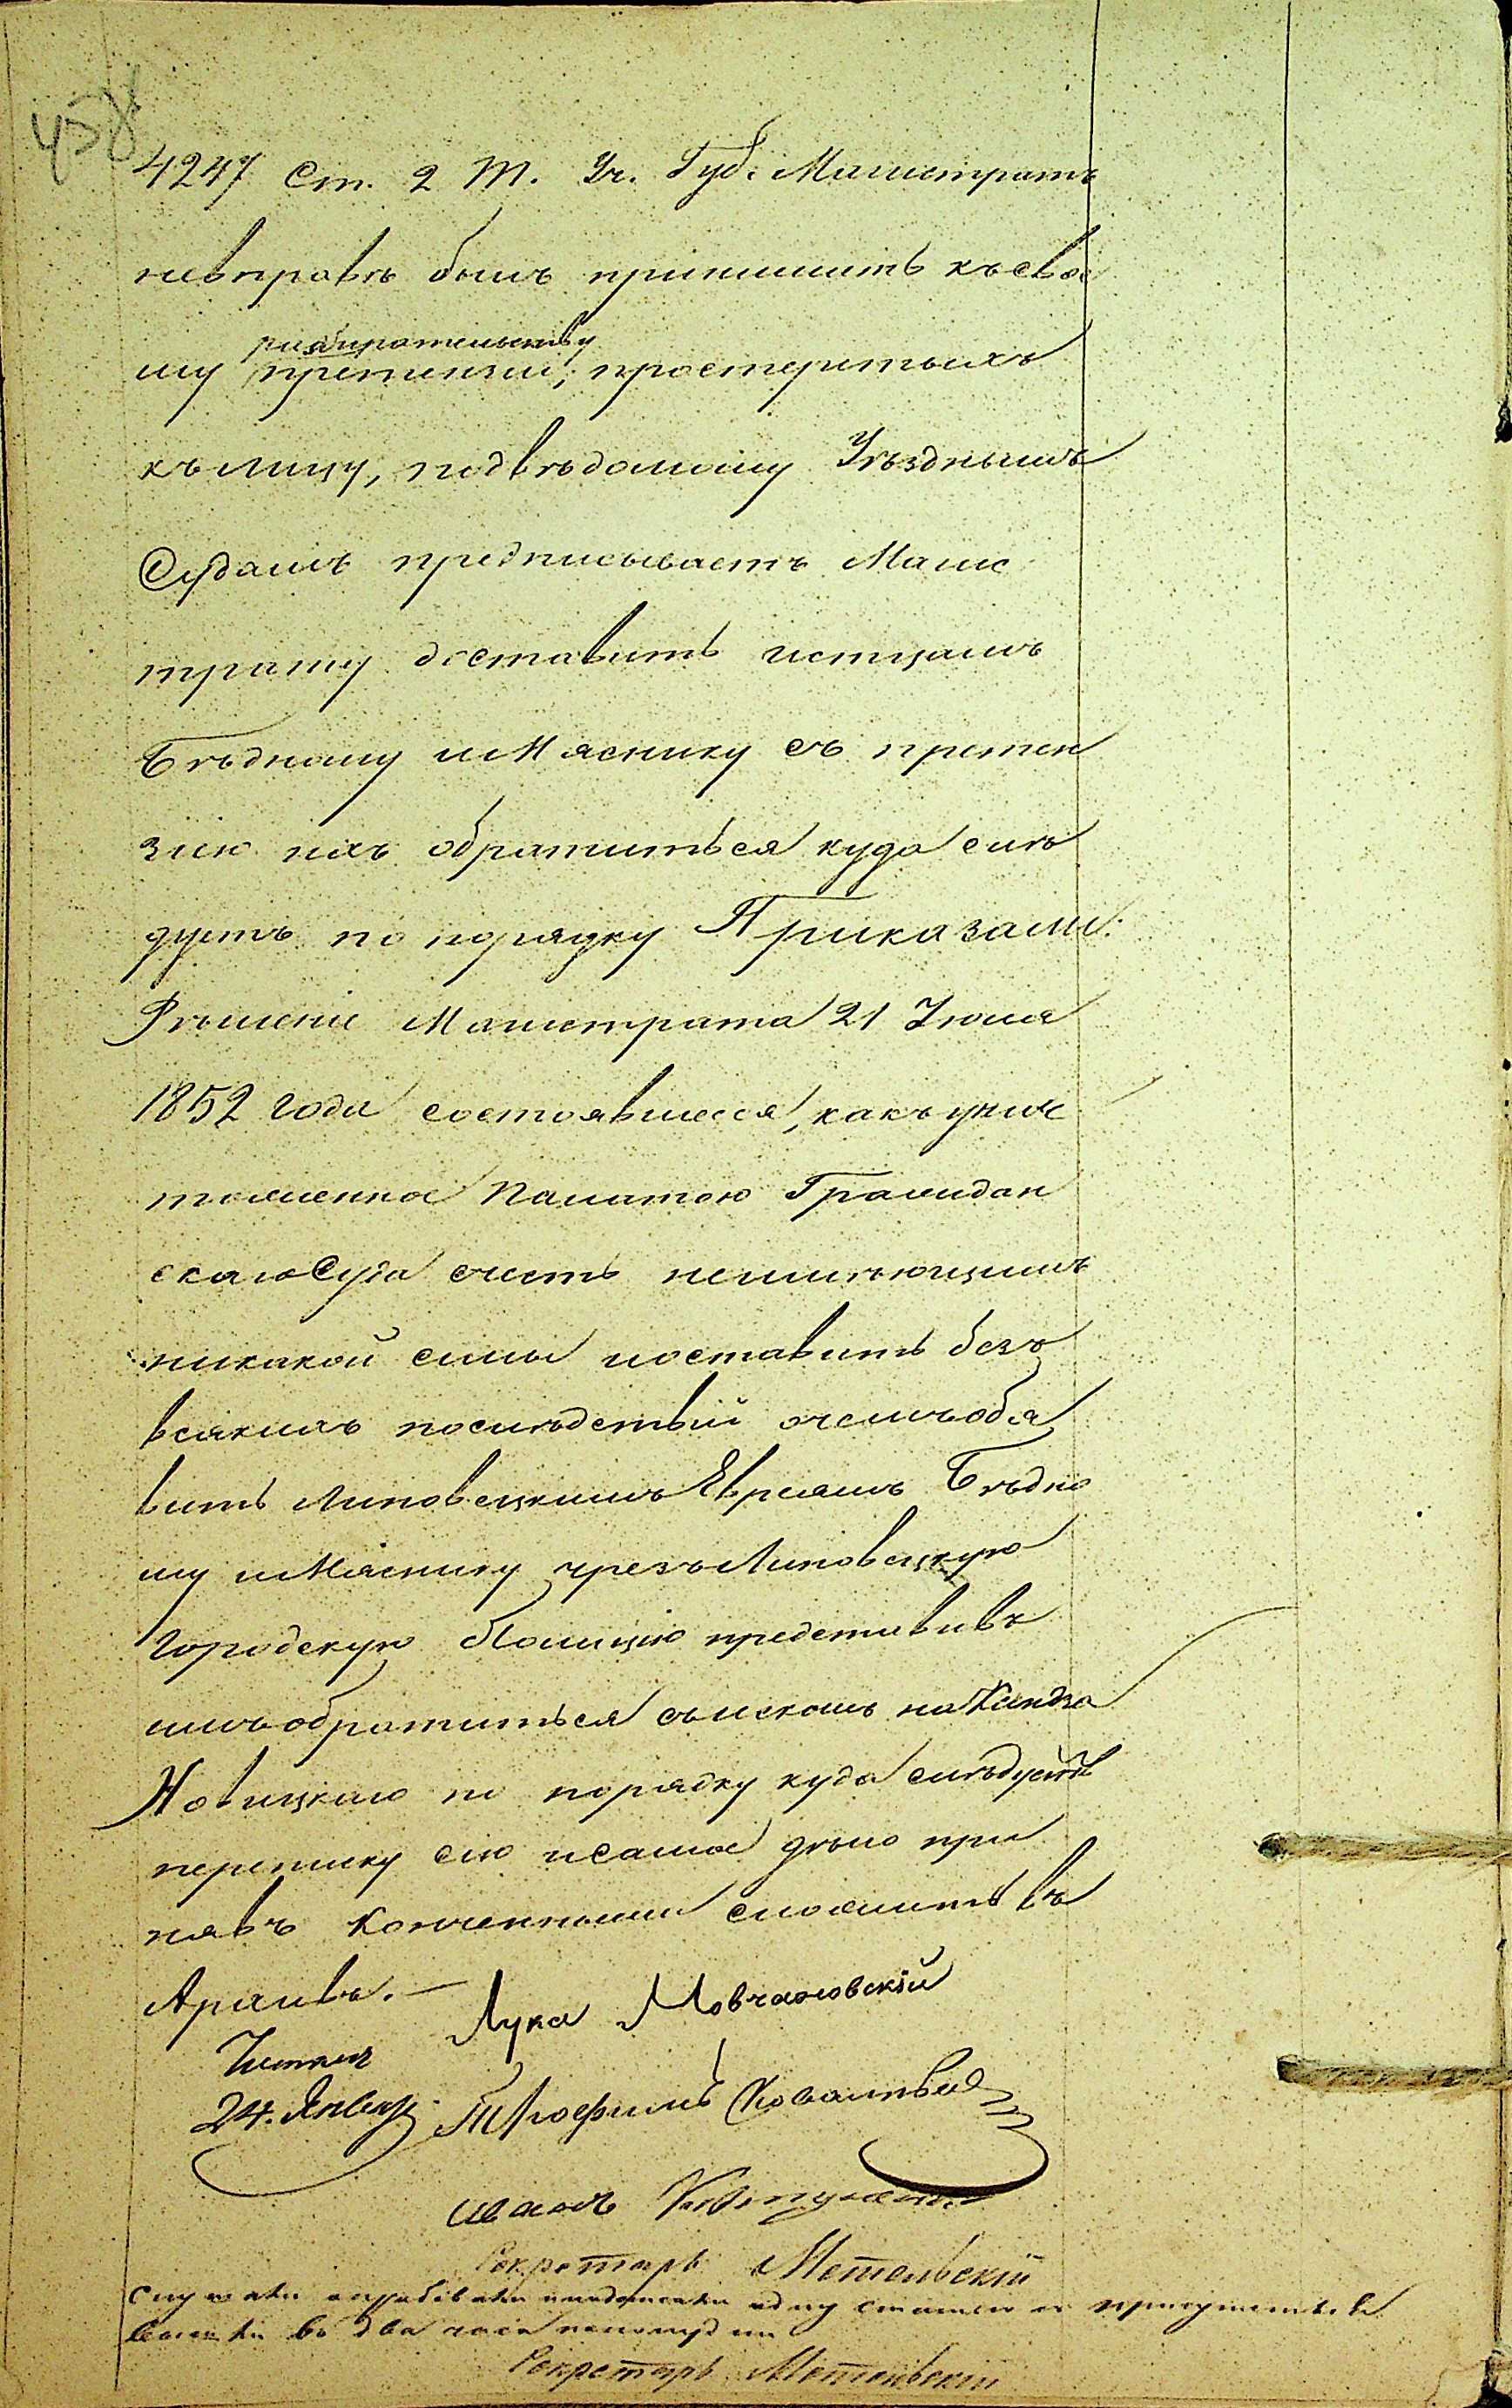 4247 Ст. 2 Т. Уч. Губ. Магистратъ
невправѣ былъ принимать къ свое
разбирательству
му претензіи, простертыхъ
къ лицу, подвѣдомому Уѣзднымъ
Судамъ предписываетъ Магис
трату доставить истцамъ
Бѣдному и Мяснику съ претен
зіею ихъ обратиться куда слѣ
дуетъ по порядку Приказали:
Рѣшеніе Магистрата 21 Іюля
1852 года состоявшееся, какъ унич
тоженное Палатою Граждан
скаго Суда счесть неимѣющимъ
никакой силы и оставить безъ
всякихъ послѣдствій о чемъ объя
вить Липовецкимъ Евреямъ Бѣдно
му и Мяснику чрезъ Липовецкую
Городскую Полицію представивъ
имъ обратиться съ искомъ на
Новицкаго по порядку куда слѣдуетъ
переписку сію и самое дѣло при
нявъ конченными сложить въ
Архивъ. —
Лука Мовчановскій
24. Январ.
Трофимъ
Иванъ
Секретарь Метельскій
одну статью
въ два часа пополудни
Секретарь Метельскій